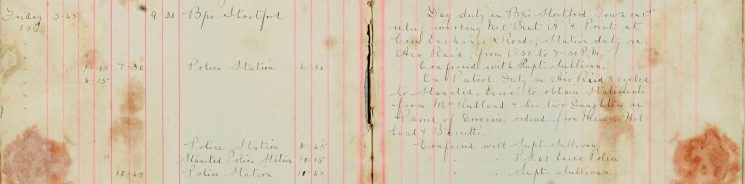 Friday 5-45 9-30 Bp's Stortford
15th
1-15 7-30 Police Station 6-30
8-15
Police Station 8-45
Stansted Police Station 10-15
10-45 Police Station 10-45
Day duty in Bp's Stortford Town and
Beat & Points at
Corn Exchange Road, Station duty re
Air Raid, from 6-30 to 7-30 P.M.
Conferred with Supt. Sullivan.
On Patrol Duty re Air Raid & cycled
to Stansted, Essex to obtain Statements
from Mrs Rudland & her two Daughters re
Parcel of Groceries ordered from Messrs Hol-
land & Barretts.
Conferred with Supt Sullivan
" " P.S. 61 Essex Police
" " Supt. Sullivan